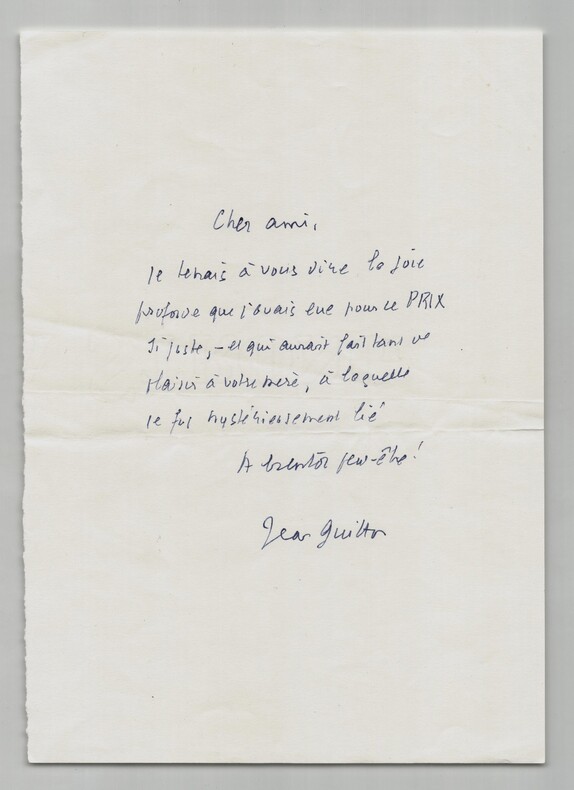 Cher ami,
Je tenais à vous dire la joie
profonde que j'avais eue pour ce PRIX
si juste, – et qui aurait fait tant de
plaisir à votre mère, à laquelle
je fus mystérieusement lié
A bientôt peut-être!
Jean Guitton